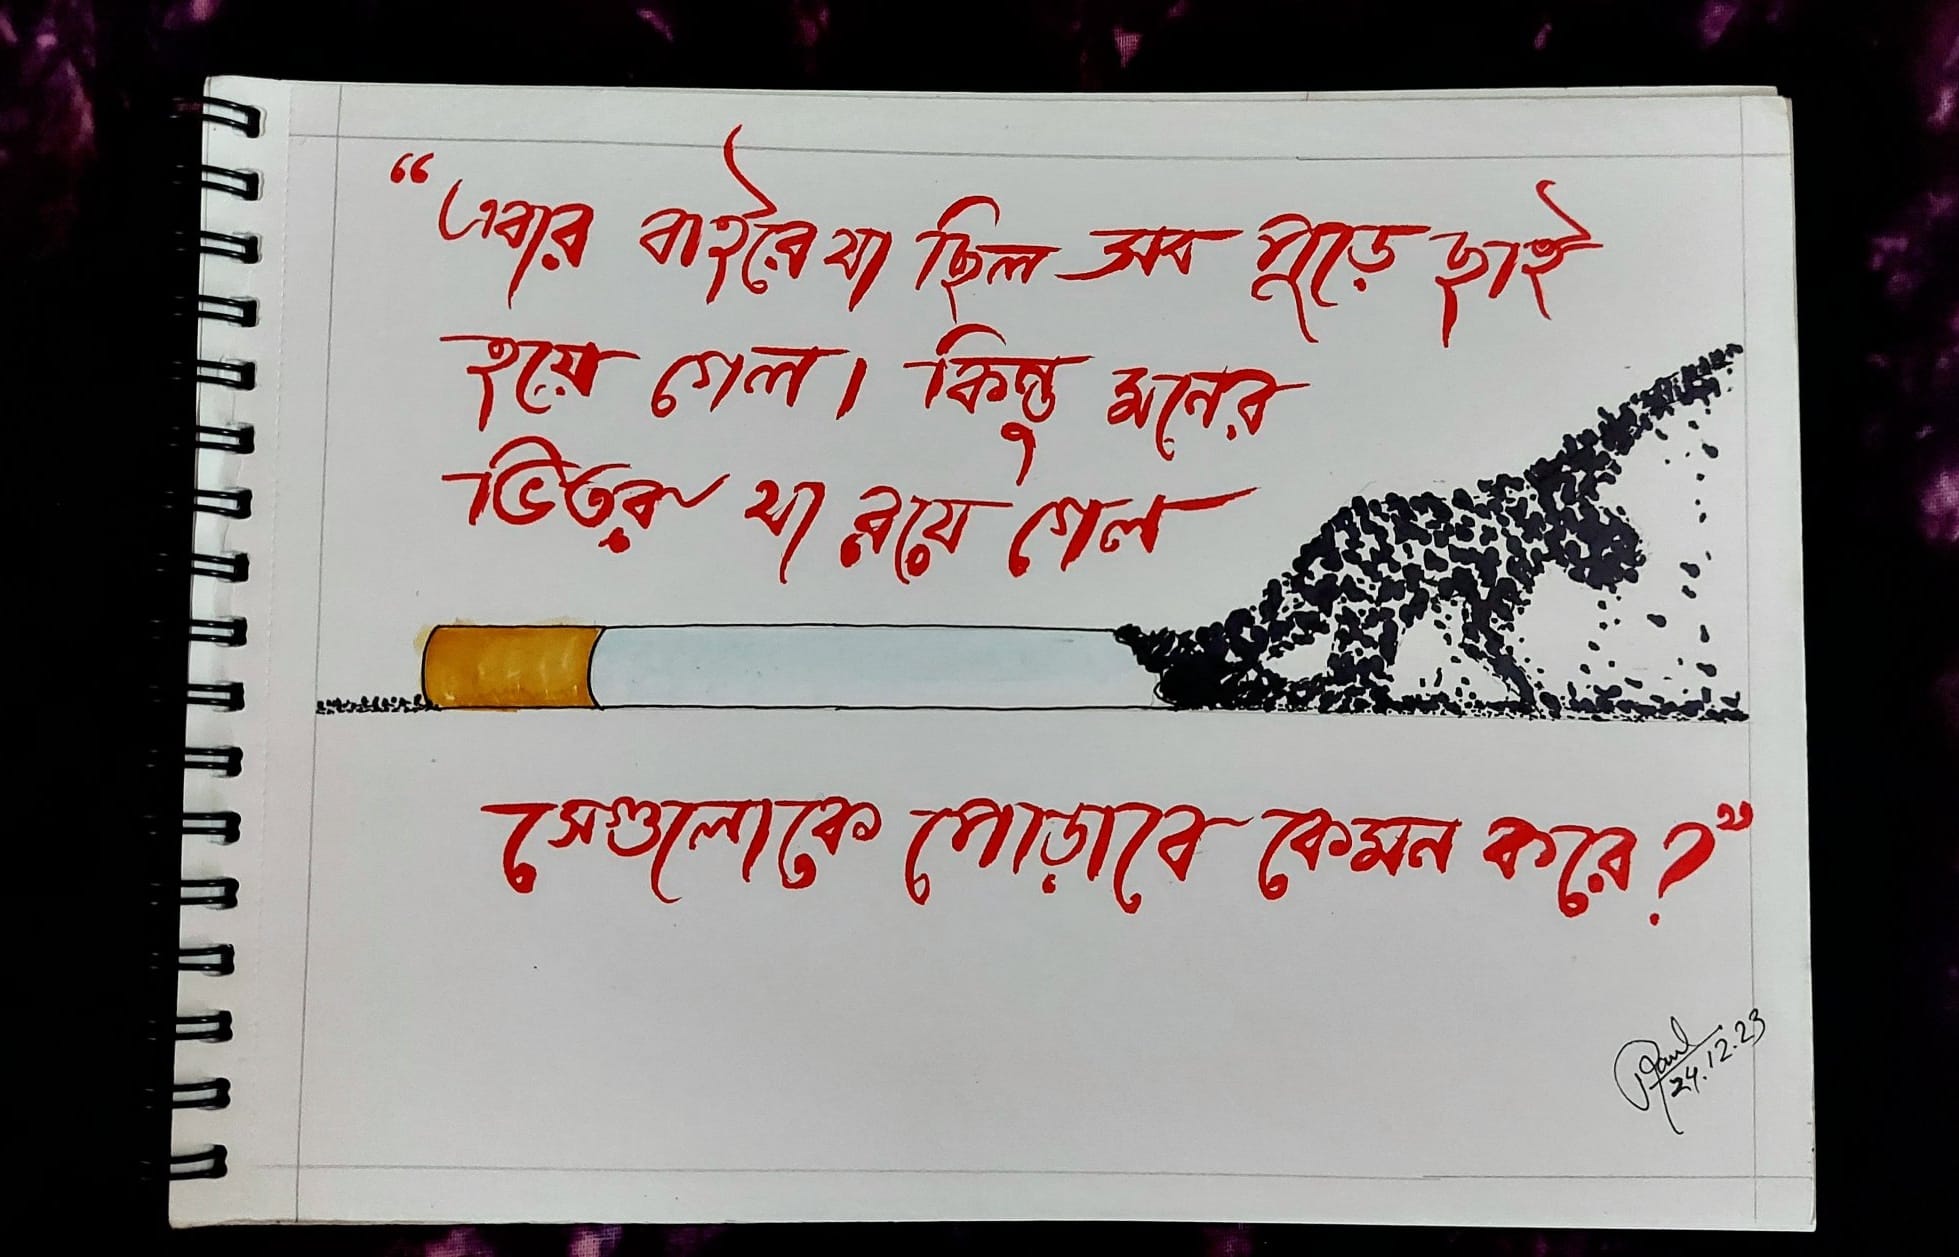 “এবার বাইরে যা ছিল সব পুড়ে ছাই
হয়ে গেল। কিন্তু মনের
ভিতর যা রয়ে গেল
সেগুলোকে পোড়াবে কেমন করে?”
Paul
24.12.23